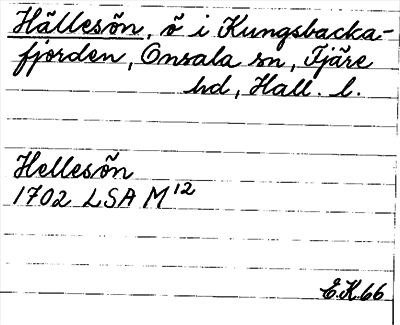 Hällesön, ö i Kungsbacka-
fjorden, Onsala sn, Fjäre
hd, Hall. l.
Hellesön
1702 LSA M¹²
E.K.66